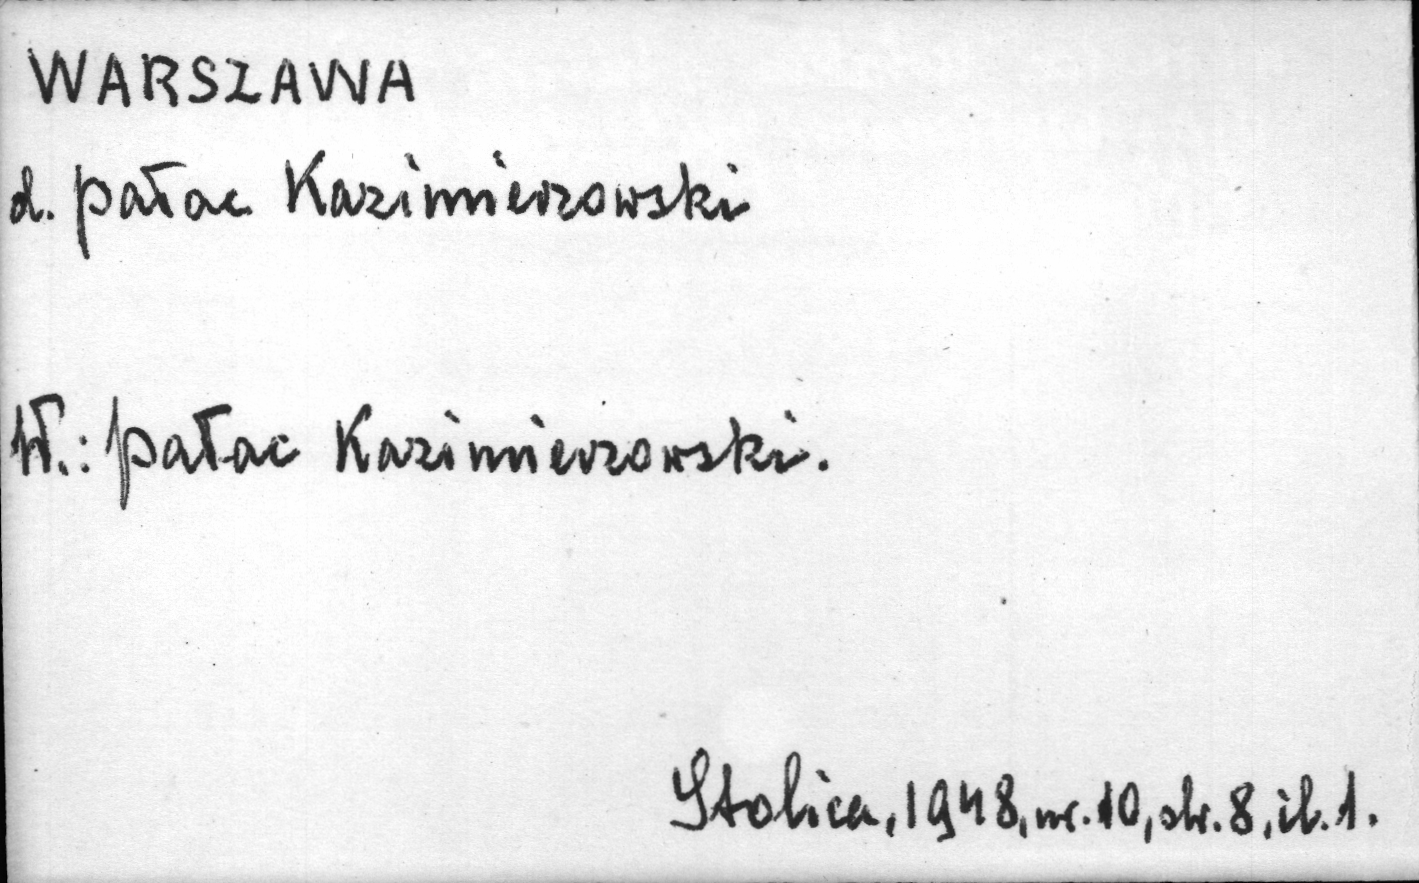 WARSZAWA
d. pałac Kazimierzowski
tł.: pałac Kazimierzowski.
Stolica, 1948, nr. 10, str. 8, il. 1.